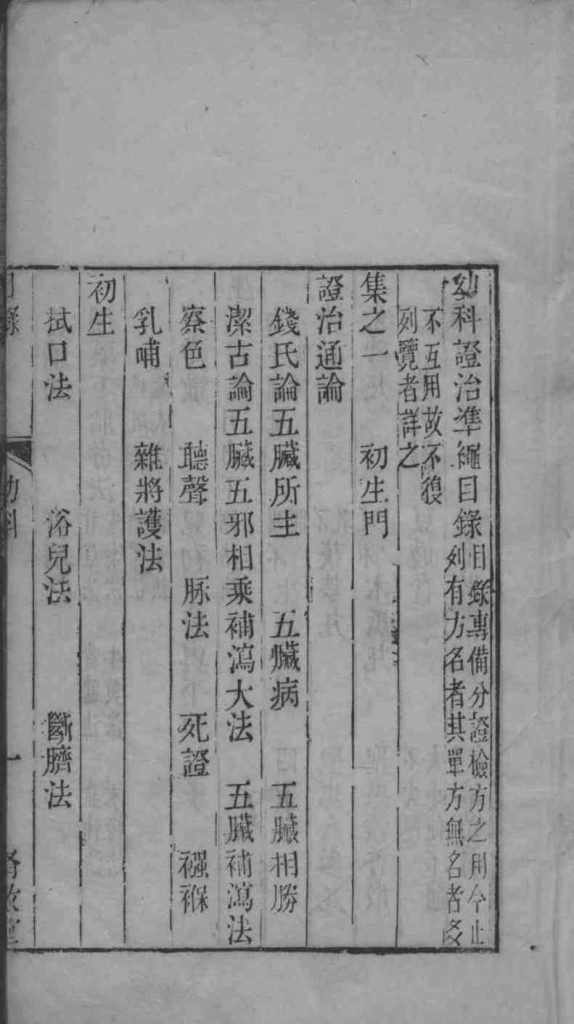 幼科證治準繩目錄目錄專備分證檢方之用今止
列有方名者其單方無名者多
不互用故不復
列覽者詳之
集之一 初生門
證治通論
錢氏論五臟所主 五臟病 五臟相勝
潔古論五臟五邪相乘補瀉大法 五臟補瀉法
察色 聽聲 脉法 死證 襁褓
乳哺 雜將護法
初生
拭口法 浴兒法 斷臍法
目錄 幼科 一